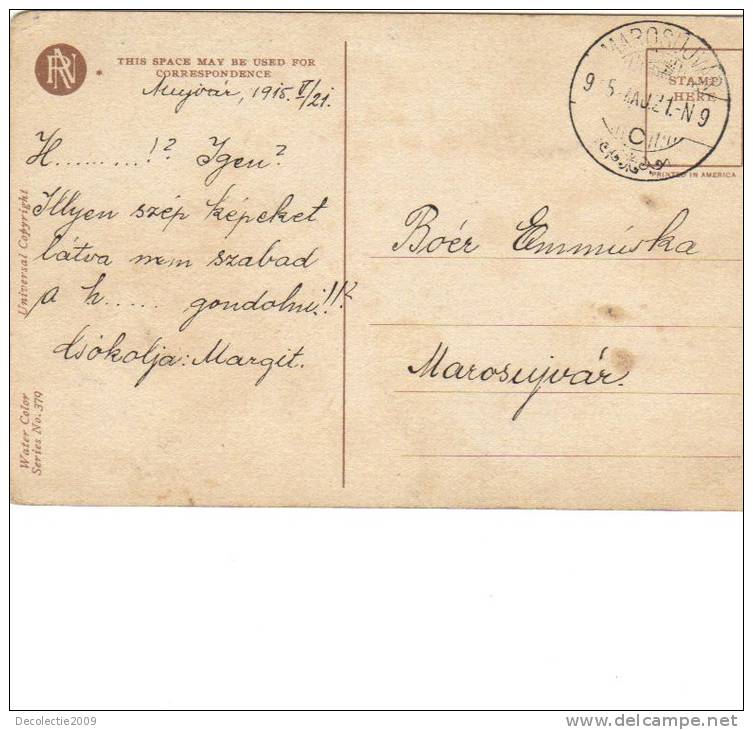 RN
THIS SPACE MAY BE USED FOR
CORRESPONDENCE
Mujvár, 1915. V/21.
H.........!? Igen?
Illyen szép képeket
látva nem szabad
a h...... gondolni!!?
Csókolja: Margit.
Universal Copyright
Water Color
Series No. 379
MAROSUJVÁR
STAMP
HERE
PRINTED IN AMERICA
Boér Emmuska
Marosujvár.
Decolectie2009
delcampe.net